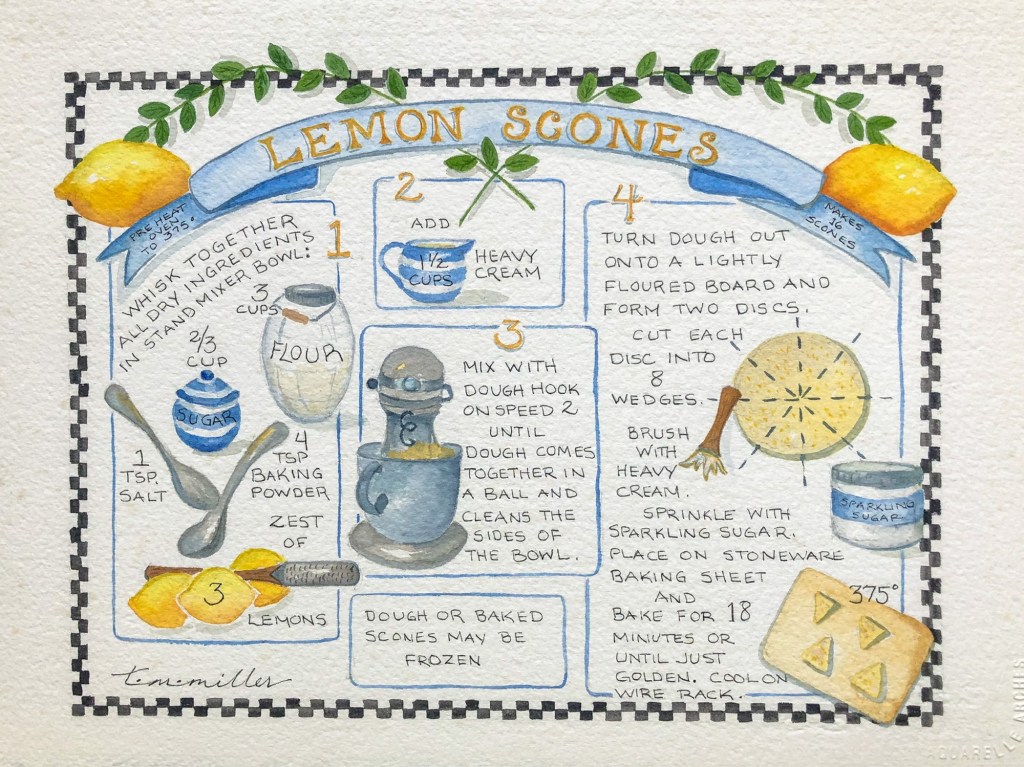 LEMON SCONES
PRE HEAT
OVEN
TO 375°
MAKES
16
SCONES
1
WHISK TOGETHER
ALL DRY INGREDIENTS
IN STAND MIXER BOWL:
3
CUPS
FLOUR
2/3
CUP
SUGAR
1
TSP.
SALT
4
TSP
BAKING
POWDER
ZEST
OF
3
LEMONS
2
ADD
1 1/2
CUPS
HEAVY
CREAM
3
MIX WITH
DOUGH HOOK
ON SPEED 2
UNTIL
DOUGH COMES
TOGETHER IN
A BALL AND
CLEANS THE
SIDES OF
THE BOWL.
DOUGH OR BAKED
SCONES MAY BE
FROZEN
4
TURN DOUGH OUT
ONTO A LIGHTLY
FLOURED BOARD AND
FORM TWO DISCS.
CUT EACH
DISC INTO
8
WEDGES.
BRUSH
WITH
HEAVY
CREAM.
SPRINKLE WITH
SPARKLING SUGAR.
SPARKLING
SUGAR
PLACE ON STONEWARE
BAKING SHEET
AND
375°
BAKE FOR 18
MINUTES OR
UNTIL JUST
GOLDEN. COOL ON
WIRE RACK.
t.m.miller
AQUARELLE ARCHES